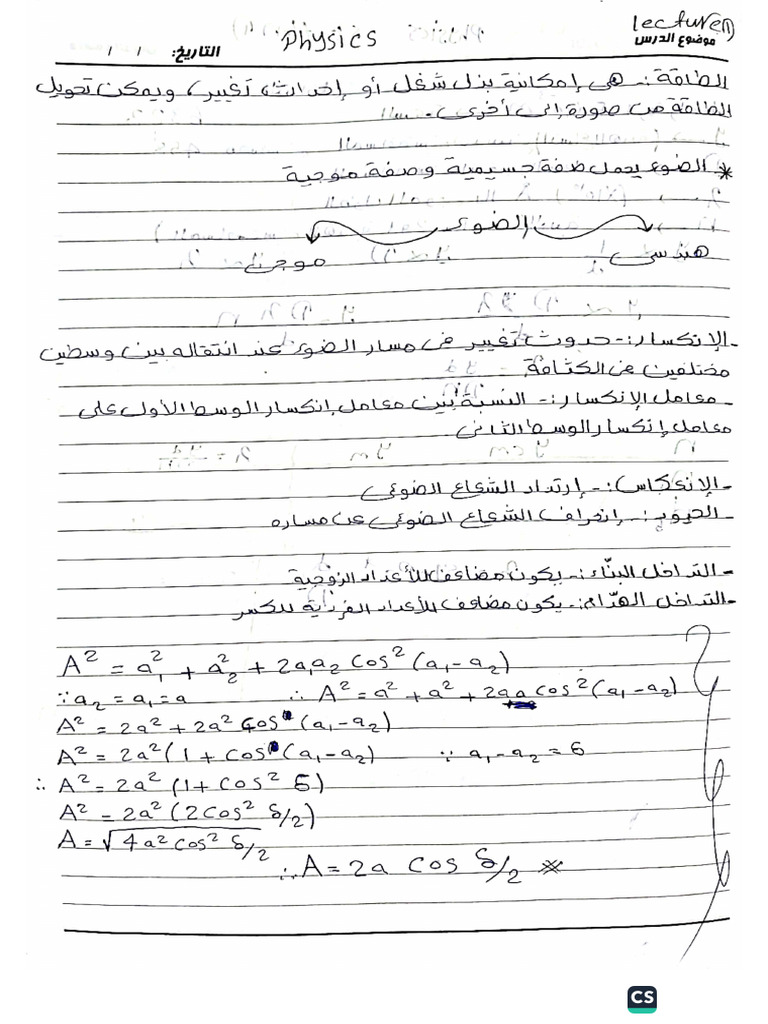 lecture(1)
موضوع الدرس
Physics
التاريخ: / /
الطاقة:- هي إمكانية بذل شغل أو إحداث تغيير، ويمكن تحويل
الطاقة من صورة إلى أخرى.
* الضوء يحمل صفة جسيمية وصفة موجية
الضوء
هندسي موجي
- الإنكسار:- حدوث تغيير في مسار الضوء عند انتقاله بين وسطين
مختلفين في الكثافة.
- معامل الإنكسار:- النسبة بين معامل إنكسار الوسط الأول على
معامل إنكسار الوسط الثاني
- الإنعكاس:- إرتداد الشعاع الضوئي
- الحيود:- إنحراف الشعاع الضوئي عن مساره
- التداخل البنّاء:- يكون مضاعف للأعداد الزوجية
- التداخل الهدّام:- يكون مضاعف للأعداد الفردية للكسر
A² = a₁² + a₂² + 2a₁a₂ Cos² (a₁ - a₂)
∵ a₂ = a₁ = a ∴ A² = a² + a² + 2aa cos² (a₁ - a₂)
A² = 2a² + 2a² cos (a₁ - a₂)
A² = 2a² (1 + cos (a₁ - a₂) ∵ a₁ - a₂ = δ
∴ A² = 2a² (1 + cos² δ)
A² = 2a² (2cos² δ/2)
A = √4a² cos² δ/2
∴ A = 2a cos δ/2 *
CS